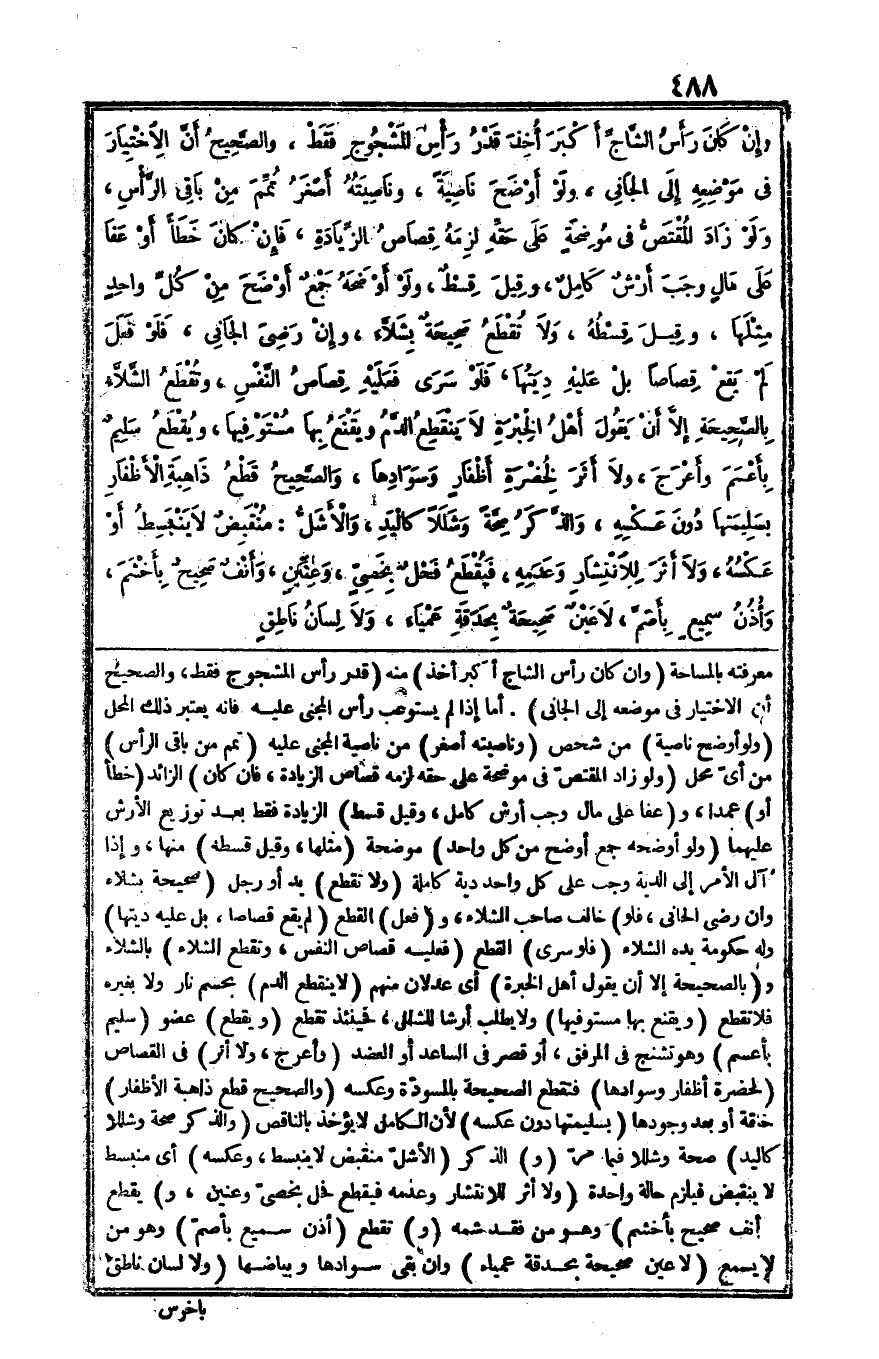 ٤٨٨
وإِنْ كَانَ رَأْسُ الشَّاجِّ أَكْبَرَ أُخِذَ قَدْرُ رَأْسِ المَشْجُوجِ فَقَطْ ، والصَّحِيحُ أَنَّ الِاخْتِيَارَ
فِى مَوْضِعِهِ إِلَى الجَانِى ، وَلَوْ أَوْضَحَ نَاصِيَةً ، ونَاصِيَتُهُ أَصْغَرُ تُمِّمَ مِنْ بَاقِى الرَّأْسِ ،
وَلَوْ زَادَ المُقْتَصُّ فى مُوضِحَةٍ عَلَى حَقِّهِ لَزِمَهُ قِصَاصُ الزِّيَادَةِ ، فَإِنْ كَانَ خَطَأً أَوْ عَفَا
عَلَى مَالٍ وجَبَ أَرْشٌ كَامِلٌ ، وقِيلَ قِسْطٌ ، ولَوْ أَوْضَحَهُ جَمْعٌ أَوْضَحَ مِنْ كُلِّ واحِدٍ
مِثْلَهَا ، وقِيلَ قِسْطُهُ ، وَلَا تُقْطَعُ صَحِيحَةٌ بِشَلَّاءَ ، وإِنْ رَضِىَ الجَانِى ، فَلَوْ فَعَلَ
لَمْ يَقَعْ قِصَاصاً بلْ عَلَيْهِ دِيَتُهَا ، فَلَوْ سَرَى فَعَلَيْهِ قِصَاصُ النَّفْسِ ، وتُقْطَعُ الشَّلَّاءُ
بِالصَّحِيحَةِ إِلاَّ أَنْ يَقُولَ أَهْلُ الخِبْرَةِ لاَ يَنْقَطِعُ الدَّمُ ويَقْنَعُ بِها مُسْتَوْفِيهَا ، ويُقْطَعُ سَلِيمٌ
بِأَعْسَمَ وأَعْرَجَ ، ولاَ أَثَرَ لِخُضْرَةِ أَظْفَارٍ وَسَوَادِهَا ، وَالصَّحِيحُ قَطْعُ ذَاهِبَةِ الْأَظْفَارِ
بِسَلِيمَتِهَا دُونَ عَكْسِهِ ، وَالذَّكَرُ صِحَّةً وَشَلَلاً كَالْيَدِ ، وَالْأَشَلُّ : مُنْقَبِضٌ لاَ يَنْبَسِطُ أَوْ
عَكْسُهُ ، وَلاَ أَثَرَ لِلِانْتِشَارِ وَعَدَمِهِ ، فَيُقْطَعُ فَحْلٌ بِخَصِىٍّ ، وَعِنِّينٍ ، وَأَنْفٌ صَحِيحٌ بِأَخْشَمَ ،
وَأُذُنُ سَمِيعٍ بِأَصَمَّ ، لَاعَيْنٌ صَحِيحَةٌ بِحَدَقَةٍ عَمْيَاءَ ، وَلَا لِسَانُ نَاطِقٍ
معرفته بالمساحة ( وان كان رأس الشاج أكبر أخذ ) منه ( قدر رأس المشجوج فقط ، والصحيح
أن الاختيار فى موضعه إلى الجانى ) . أما إذا لم يستوعب رأس المجنى عليه فانه يعتبر ذلك المحل
( ولو أوضح ناصية ) من شخص ( وناصيته أصغر ) من ناصية المجنى عليه ( تمم من باقى الرأس )
من أىّ محل ( ولو زاد المقتص فى موضحة على حقه لزمه قصاص الزيادة ، فان كان ) الزائد ( خطأ
أو ) عمدا ، و ( عفا على مال وجب أرش كامل ، وقيل قسط ) الزيادة فقط بعد توزيع الأرش
عليهما ( ولو أوضحه جمع أوضح من كل واحد ) موضحة ( مثلها ، وقيل قسطه ) منها ، وإذا
آل الأمر إلى الدية وجب على كل واحد دية كاملة ( ولا تقطع ) يد أو رجل ( صحيحة بشلاء
وان رضى الجانى ، فلو ) خالف صاحب الشلاء ، و ( فعل ) القطع ( لم يقع قصاصا ، بل عليه ديتها )
وله حكومة يده الشلاء ( فلو سرى ) القطع ( فعليه قصاص النفس ، وتقطع الشلاء ) بالشلاء
و ( بالصحيحة إلا أن يقول أهل الخبرة ) أى عدلان منهم ( لاينقطع الدم ) بحسم نار ولا بغيره
فلا تقطع ( ويقنع بها مستوفيها ) ولا يطلب أرشا للشلل ، فينئذ تقطع ( ويقطع ) عضو ( سليم
بأعسم ) وهو تشنج فى المرفق ، أو قصر فى الساعد أو العضد ( وأعرج ، ولا أثر ) فى القصاص
( لخضرة أظفار وسوادها ) فتقطع الصحيحة بالمسودّة وعكسه ( والصحيح قطع ذاهبة الأظفار )
خلقة أو بعد وجودها ( بسليمتها دون عكسه ) لأن الكامل لا يؤخذ بالناقص ( والذكر صحة وشللا
كاليد ) صحة وشللا فيما مرّ ( و ) الذكر ( الأشلّ منقبض لاينبسط ، وعكسه ) أى منبسط
لا ينقبض فيلزم حالة واحدة ( ولا أثر للانتشار وعدمه فيقطع فحل بخصىّ وعنين ، و ) يقطع
أنف صحيح بأخشم ) وهو من فقد شمه ( و ) تقطع ( أذن سميع بأصمّ ) وهو من
لا يسمع ( لا عين صحيحة بحدقة عمياء ) وان بقى سوادها وبياضها ( ولا لسان ناطق
بأخرس